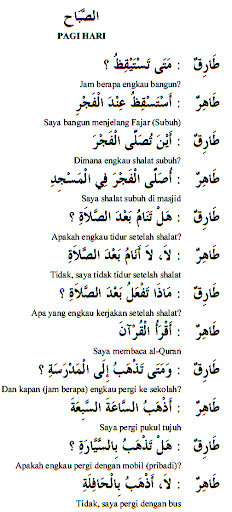 الصَّبَاح
PAGI HARI
طَارِقٌ : مَتَى تَسْتَيْقِظُ ؟
Jam berapa engkau bangun?
طَاهِرٌ : أَسْتَسْقِظُ عِنْدَ الْفَجْرِ
Saya bangun menjelang Fajar (Subuh)
طَارِقٌ : أَيْنَ تُصَلِّى الْفَجْرَ
Dimana engkau shalat subuh?
طَاهِرٌ : أُصَلِّى الْفَجْرَ فِي الْمَسْجِدِ
Saya shalat subuh di masjid
طَارِقٌ : هَلْ تَنَامُ بَعْدَ الصَّلَاةِ ؟
Apakah engkau tidur setelah shalat?
طَاهِرٌ : لاَ، لاَ أَنَامُ بَعْدَ الصَّلَاةِ
Tidak, saya tidak tidur setelah shalat
طَارِقٌ : مَاذَا تَفْعَلُ بَعْدَ الصَّلَاةِ ؟
Apa yang engkau kerjakan setelah shalat?
طَاهِرٌ : أَقْرَأُ الْقُرْآنَ
Saya membaca al-Quran
طَارِقٌ : وَمَتَى تَذْهَبُ إِلَى الْمَدْرَسَةِ ؟
Dan kapan (jam berapa) engkau pergi ke sekolah?
طَاهِرٌ : أَذْهَبُ السَّاعَةَ السَّبِعَةَ
Saya pergi pukul tujuh
طَارِقٌ : هَلْ تَذْهَبُ بِالسَّيَّارَةِ ؟
Apakah engkau pergi dengan mobil (pribadi)?
طَاهِرٌ : لاَ، أَذْهَبُ بِالْحَافِلَةِ
Tidak, saya pergi dengan bus